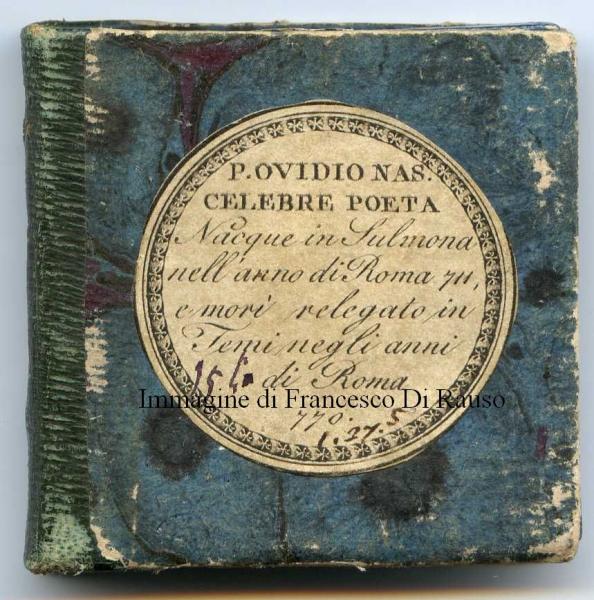 P. OVIDIO NAS.
CELEBRE POETA
Nacque in Sulmona
nell'anno di Roma 711,
e morì relegato in
Temi negli anni
di Roma
770.
Immagine di Francesco Di Rauso